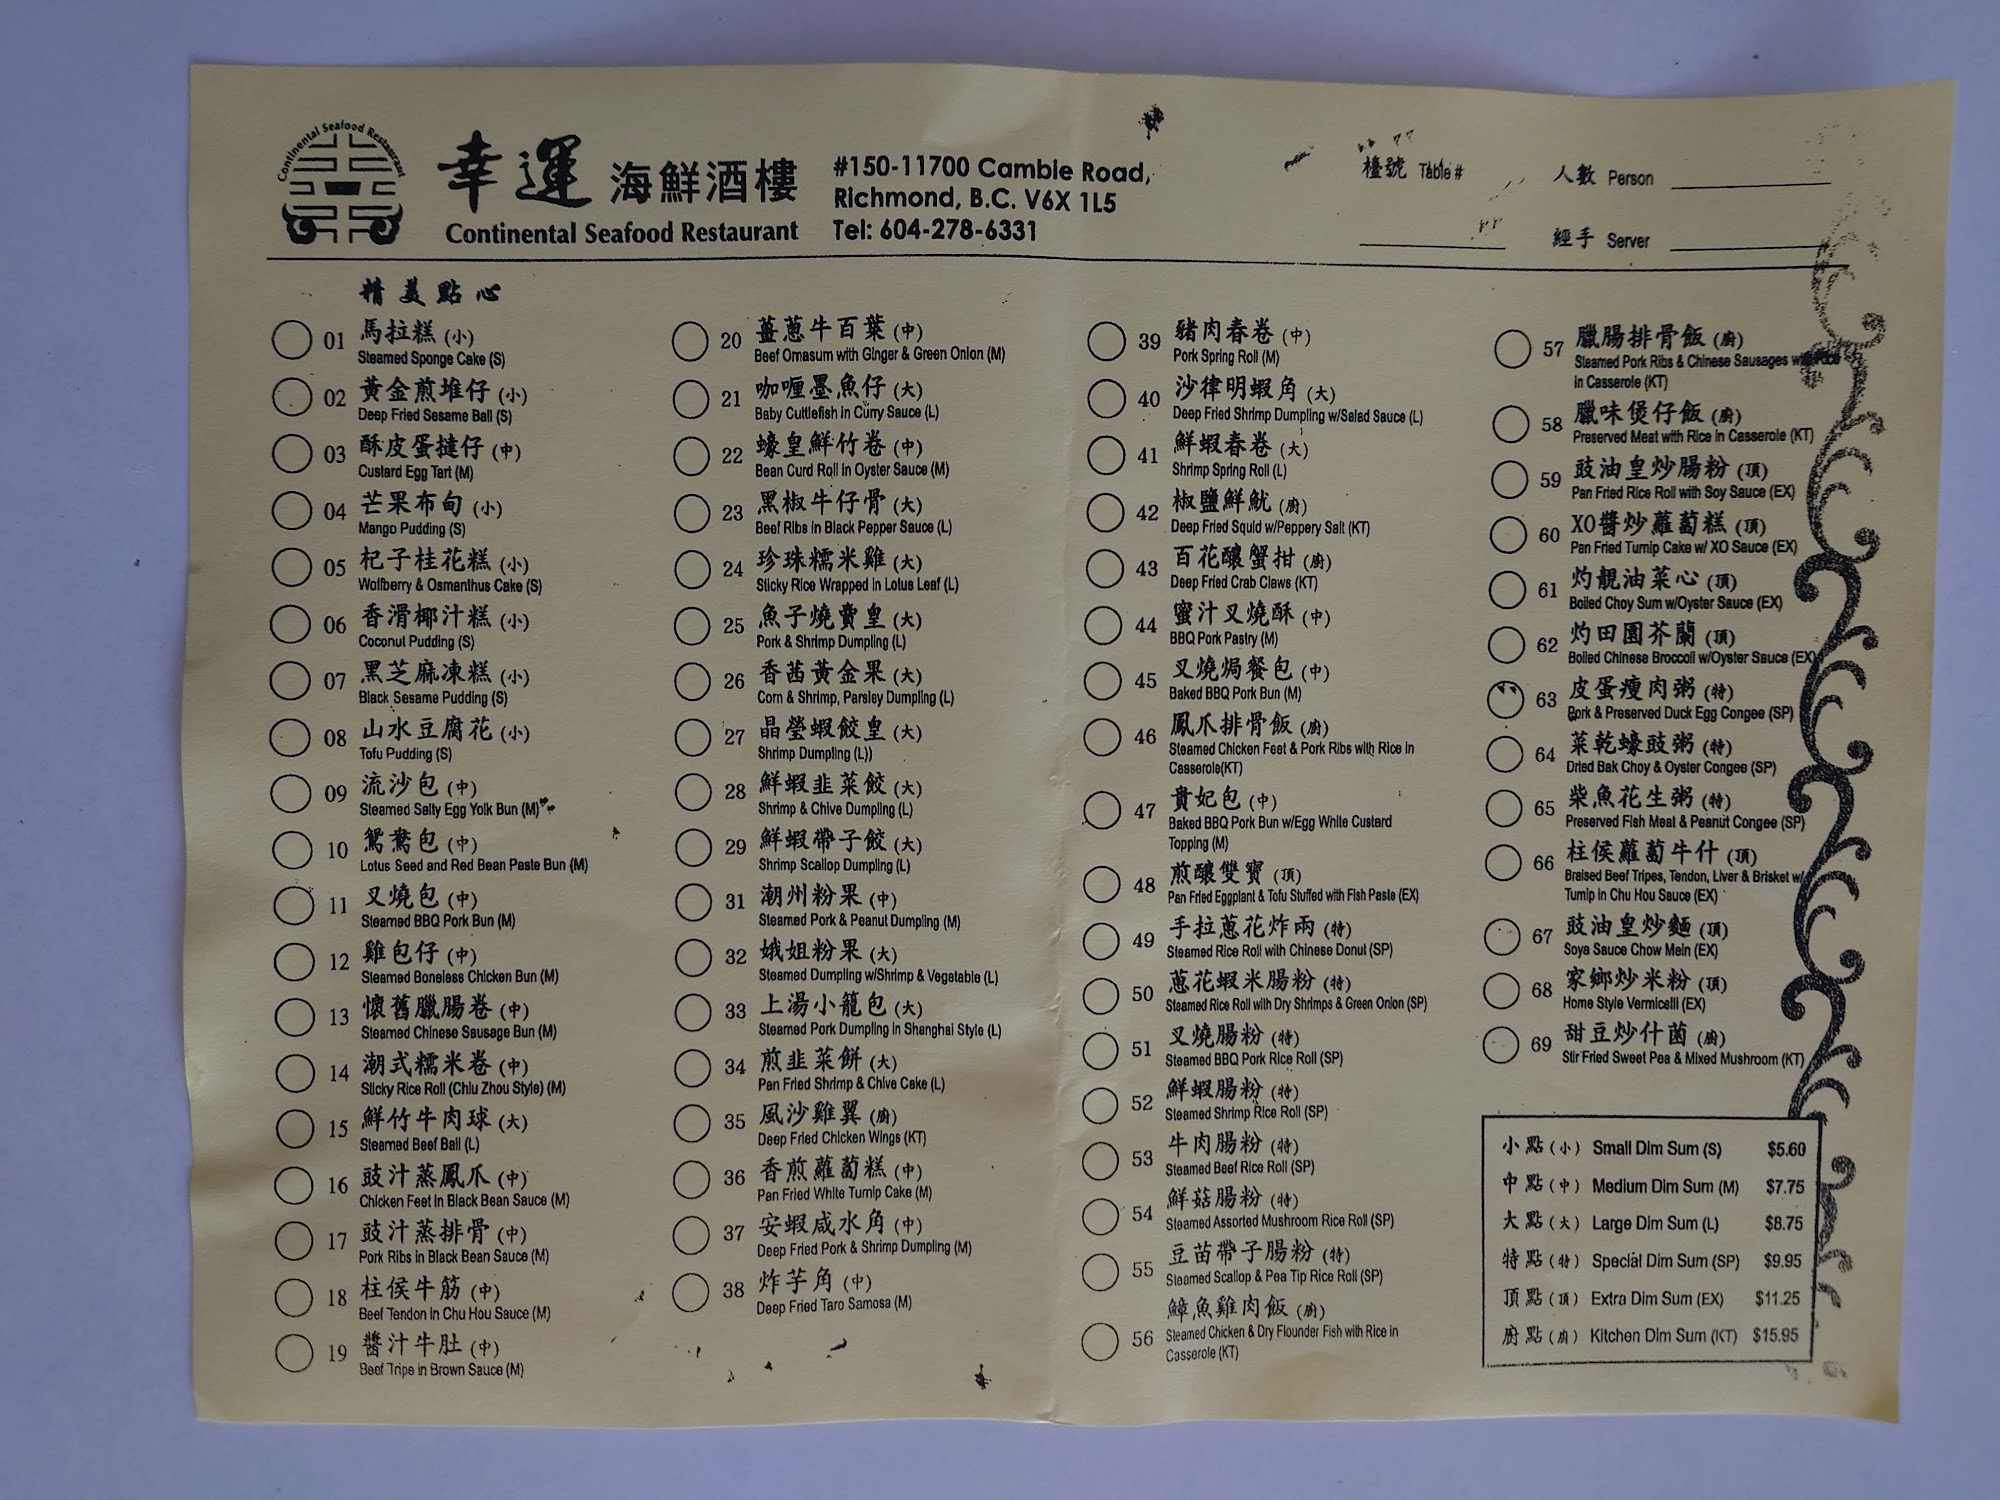 Continental Seafood Restaurant
幸運 海鮮酒樓
Continental Seafood Restaurant
#150-11700 Cambie Road,
Richmond, B.C. V6X 1L5
Tel: 604-278-6331
檯號 Table #
人數 Person
經手 Server
精美點心
01 馬拉糕 (小)
Steamed Sponge Cake (S)
02 黃金煎堆仔 (小)
Deep Fried Sesame Ball (S)
03 酥皮蛋撻仔 (中)
Custard Egg Tart (M)
04 芒果布甸 (小)
Mango Pudding (S)
05 杞子桂花糕 (小)
Wolfberry & Osmanthus Cake (S)
06 香滑椰汁糕 (小)
Coconut Pudding (S)
07 黑芝麻凍糕 (小)
Black Sesame Pudding (S)
08 山水豆腐花 (小)
Tofu Pudding (S)
09 流沙包 (中)
Steamed Salty Egg Yolk Bun (M)
10 鴛鴦包 (中)
Lotus Seed and Red Bean Paste Bun (M)
11 叉燒包 (中)
Steamed BBQ Pork Bun (M)
12 雞包仔 (中)
Steamed Boneless Chicken Bun (M)
13 懷舊臘腸卷 (中)
Steamed Chinese Sausage Bun (M)
14 潮式糯米卷 (中)
Sticky Rice Roll (Chiu Zhou Style) (M)
15 鮮竹牛肉球 (大)
Steamed Beef Ball (L)
16 豉汁蒸鳳爪 (中)
Chicken Feet in Black Bean Sauce (M)
17 豉汁蒸排骨 (中)
Pork Ribs in Black Bean Sauce (M)
18 柱侯牛筋 (中)
Beef Tendon in Chu Hou Sauce (M)
19 醬汁牛肚 (中)
Beef Tripe in Brown Sauce (M)
20 薑蔥牛百葉 (中)
Beef Omasum with Ginger & Green Onion (M)
21 咖喱墨魚仔 (大)
Baby Cuttlefish in Curry Sauce (L)
22 蠔皇鮮竹卷 (中)
Bean Curd Roll in Oyster Sauce (M)
23 黑椒牛仔骨 (大)
Beef Ribs in Black Pepper Sauce (L)
24 珍珠糯米雞 (大)
Sticky Rice Wrapped in Lotus Leaf (L)
25 魚子燒賣皇 (大)
Pork & Shrimp Dumpling (L)
26 香茜黃金果 (大)
Corn & Shrimp, Parsley Dumpling (L)
27 晶瑩蝦餃皇 (大)
Shrimp Dumpling (L))
28 鮮蝦韭菜餃 (大)
Shrimp & Chive Dumpling (L)
29 鮮蝦帶子餃 (大)
Shrimp Scallop Dumpling (L)
31 潮州粉果 (中)
Steamed Pork & Peanut Dumpling (M)
32 娥姐粉果 (大)
Steamed Dumpling w/Shrimp & Vegetable (L)
33 上湯小籠包 (大)
Steamed Pork Dumpling in Shanghai Style (L)
34 煎韭菜餅 (大)
Pan Fried Shrimp & Chive Cake (L)
35 風沙雞翼 (廚)
Deep Fried Chicken Wings (KT)
36 香煎蘿蔔糕 (中)
Pan Fried White Turnip Cake (M)
37 安蝦咸水角 (中)
Deep Fried Pork & Shrimp Dumpling (M)
38 炸芋角 (中)
Deep Fried Taro Samosa (M)
39 豬肉春卷 (中)
Pork Spring Roll (M)
40 沙律明蝦角 (大)
Deep Fried Shrimp Dumpling w/Salad Sauce (L)
41 鮮蝦春卷 (大)
Shrimp Spring Roll (L)
42 椒鹽鮮魷 (廚)
Deep Fried Squid w/Peppery Salt (KT)
43 百花釀蟹拑 (廚)
Deep Fried Crab Claws (KT)
44 蜜汁叉燒酥 (中)
BBQ Pork Pastry (M)
45 叉燒焗餐包 (中)
Baked BBQ Pork Bun (M)
46 鳳爪排骨飯 (廚)
Steamed Chicken Feet & Pork Ribs with Rice in
Casserole(KT)
47 貴妃包 (中)
Baked BBQ Pork Bun w/Egg White Custard
Topping (M)
48 煎釀雙寶 (頂)
Pan Fried Eggplant & Tofu Stuffed with Fish Paste (EX)
49 手拉蔥花炸兩 (特)
Steamed Rice Roll with Chinese Donut (SP)
50 蔥花蝦米腸粉 (特)
Steamed Rice Roll with Dry Shrimps & Green Onion (SP)
51 叉燒腸粉 (特)
Steamed BBQ Pork Rice Roll (SP)
52 鮮蝦腸粉 (特)
Steamed Shrimp Rice Roll (SP)
53 牛肉腸粉 (特)
Steamed Beef Rice Roll (SP)
54 鮮菇腸粉 (特)
Steamed Assorted Mushroom Rice Roll (SP)
55 豆苗帶子腸粉 (特)
Steamed Scallop & Pea Tip Rice Roll (SP)
56 鱆魚雞肉飯 (廚)
Steamed Chicken & Dry Flounder Fish with Rice in
Casserole (KT)
57 臘腸排骨飯 (廚)
Steamed Pork Ribs & Chinese Sausages with Rice
in Casserole (KT)
58 臘味煲仔飯 (廚)
Preserved Meat with Rice in Casserole (KT)
59 豉油皇炒腸粉 (頂)
Pan Fried Rice Roll with Soy Sauce (EX)
60 XO醬炒蘿蔔糕 (頂)
Pan Fried Turnip Cake w/ XO Sauce (EX)
61 灼靚油菜心 (頂)
Boiled Choy Sum w/Oyster Sauce (EX)
62 灼田園芥蘭 (頂)
Boiled Chinese Broccoli w/Oyster Sauce (EX)
63 皮蛋瘦肉粥 (特)
Pork & Preserved Duck Egg Congee (SP)
64 菜乾蠔豉粥 (特)
Dried Bak Choy & Oyster Congee (SP)
65 柴魚花生粥 (特)
Preserved Fish Meat & Peanut Congee (SP)
66 柱侯蘿蔔牛什 (頂)
Braised Beef Tripes, Tendon, Liver & Brisket w/
Turnip in Chu Hou Sauce (EX)
67 豉油皇炒麵 (頂)
Soya Sauce Chow Mein (EX)
68 家鄉炒米粉 (頂)
Home Style Vermicelli (EX)
69 甜豆炒什菌 (廚)
Stir Fried Sweet Pea & Mixed Mushroom (KT)
小點 (小) Small Dim Sum (S) $5.60
中點 (中) Medium Dim Sum (M) $7.75
大點 (大) Large Dim Sum (L) $8.75
特點 (特) Special Dim Sum (SP) $9.95
頂點 (頂) Extra Dim Sum (EX) $11.25
廚點 (廚) Kitchen Dim Sum (KT) $15.95